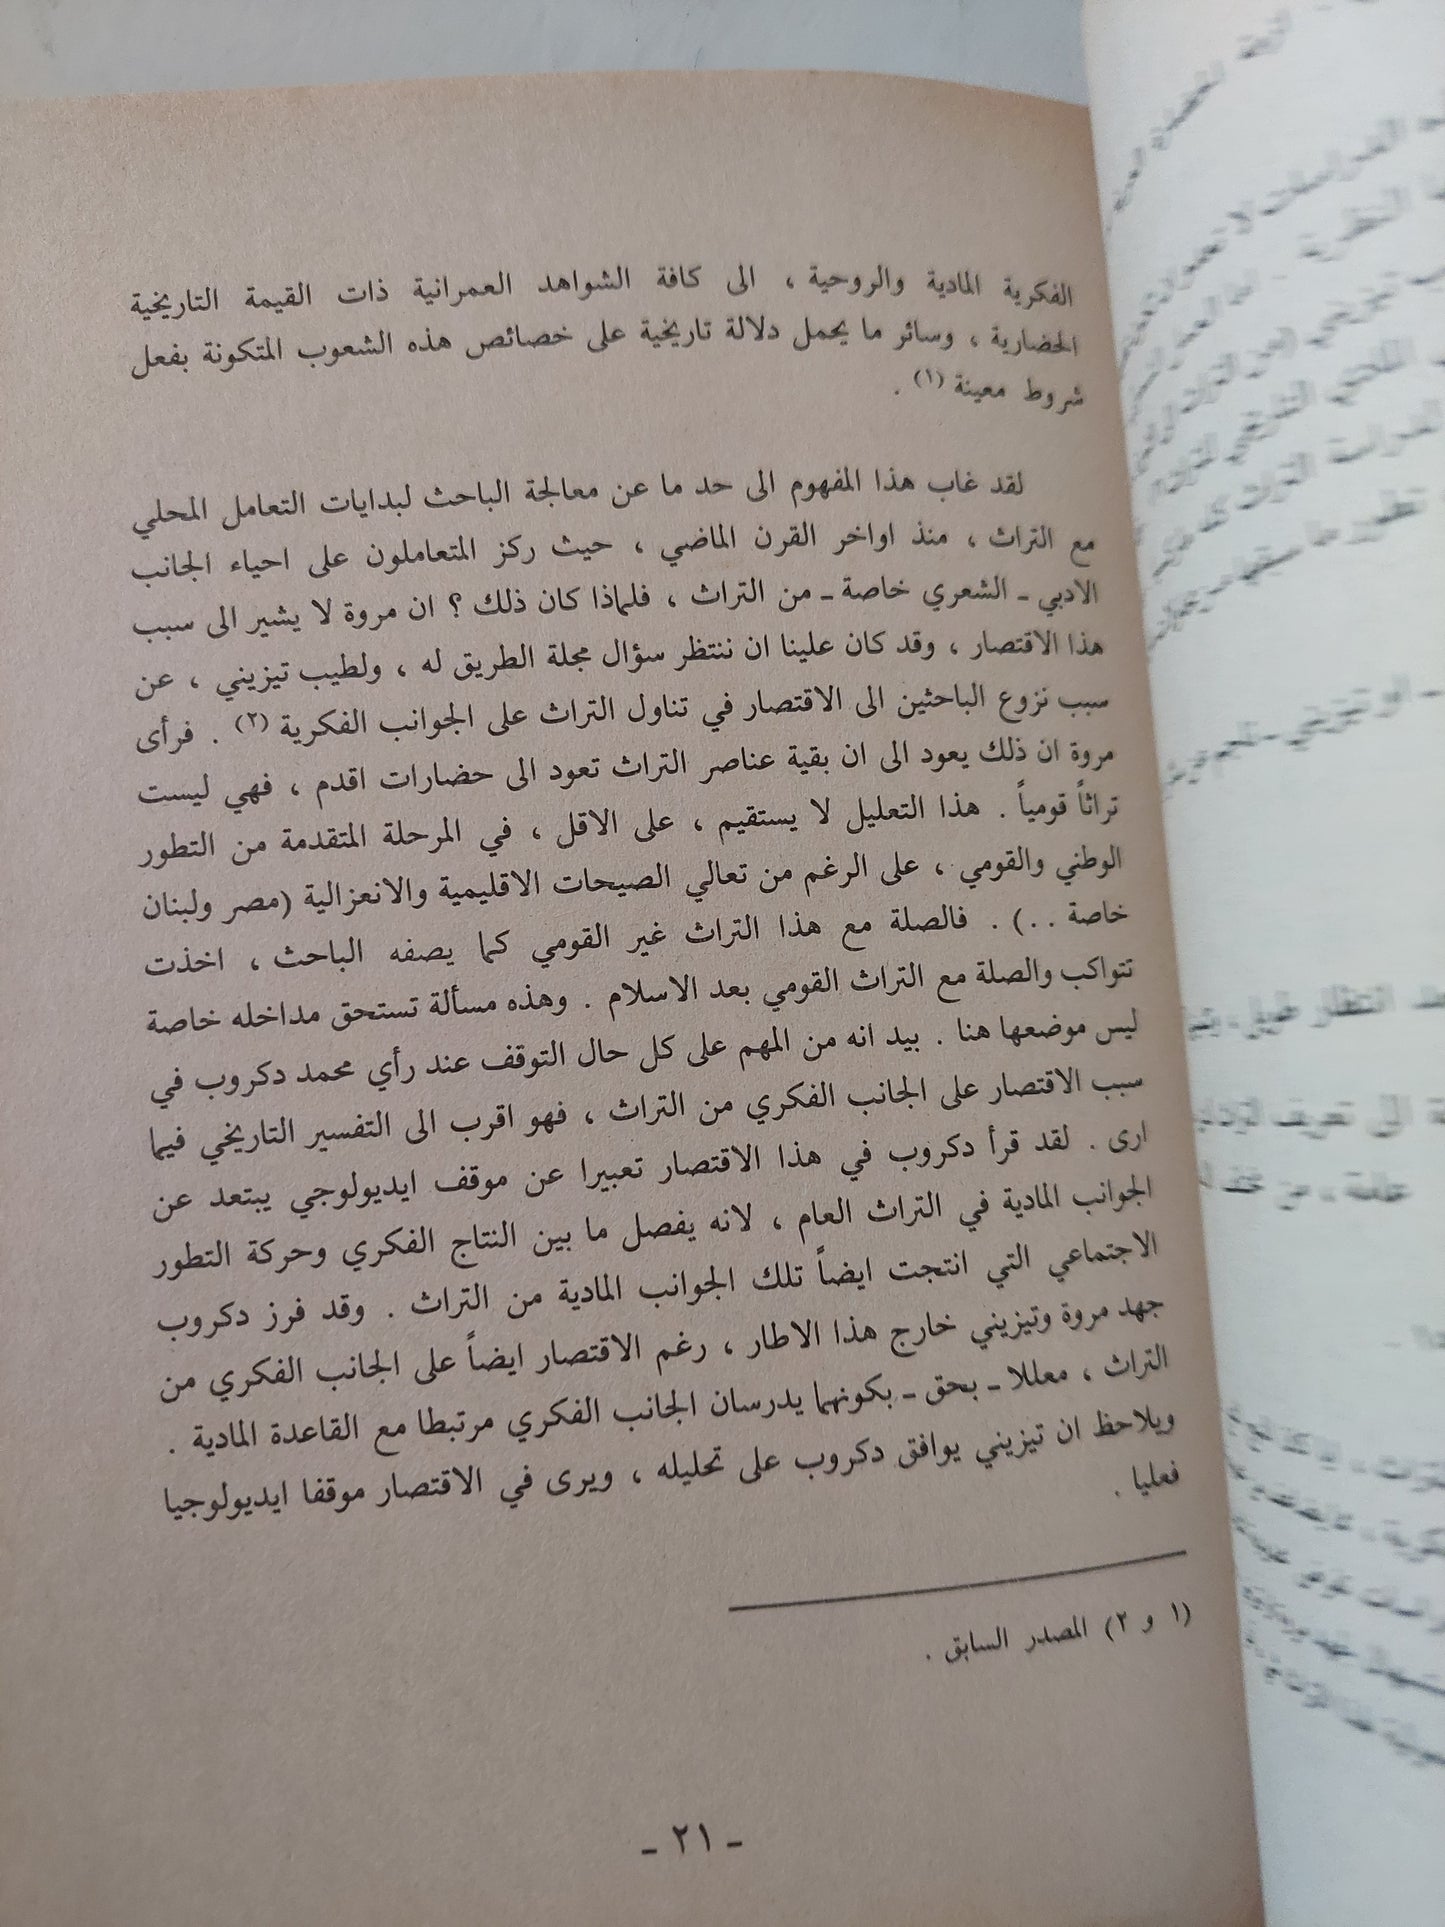 الفكرية المادية والروحية ، الى كافة الشواهد العمرانية ذات القيمة التاريخية
الحضارية ، وسائر ما يحمل دلالة تاريخية على خصائص هذه الشعوب المتكونة بفعل
شروط معينة (١) .
لقد غاب هذا المفهوم الى حد ما عن معالجة الباحث لبدايات التعامل المحلي
مع التراث ، منذ اواخر القرن الماضي ، حيث ركز المتعاملون على احياء الجانب
الادبي ـ الشعري خاصة ـ من التراث ، فلماذا كان ذلك ؟ ان مروة لا يشير الى سبب
هذا الاقتصار ، وقد كان علينا ان ننتظر سؤال مجلة الطريق له ، ولطيب تيزيني ، عن
سبب نزوع الباحثين الى الاقتصار في تناول التراث على الجوانب الفكرية (٢) . فرأى
مروة ان ذلك يعود الى ان بقية عناصر التراث تعود الى حضارات اقدم ، فهي ليست
تراثاً قومياً . هذا التعليل لا يستقيم ، على الاقل ، في المرحلة المتقدمة من التطور
الوطني والقومي ، على الرغم من تعالي الصيحات الاقليمية والانعزالية (مصر ولبنان
خاصة ..) . فالصلة مع هذا التراث غير القومي كما يصفه الباحث ، اخذت
تتواكب والصلة مع التراث القومي بعد الاسلام . وهذه مسألة تستحق مداخله خاصة
ليس موضعها هنا . بيد انه من المهم على كل حال التوقف عند رأي محمد دكروب في
سبب الاقتصار على الجانب الفكري من التراث ، فهو اقرب الى التفسير التاريخي فيما
ارى . لقد قرأ دكروب في هذا الاقتصار تعبيرا عن موقف ايديولوجي يبتعد عن
الجوانب المادية في التراث العام ، لانه يفصل ما بين النتاج الفكري وحركة التطور
الاجتماعي التي انتجت ايضاً تلك الجوانب المادية من التراث . وقد فرز دكروب
جهد مروة وتيزيني خارج هذا الاطار ، رغم الاقتصار ايضاً على الجانب الفكري من
التراث ، معللا ـ بحق ـ بكونهما يدرسان الجانب الفكري مرتبطا مع القاعدة المادية .
ويلاحظ ان تيزيني يوافق دكروب على تحليله ، ويرى في الاقتصار موقفا ايديولوجيا
فعليا .
(١ و ٢) المصدر السابق .
ـ ٢١ ـ